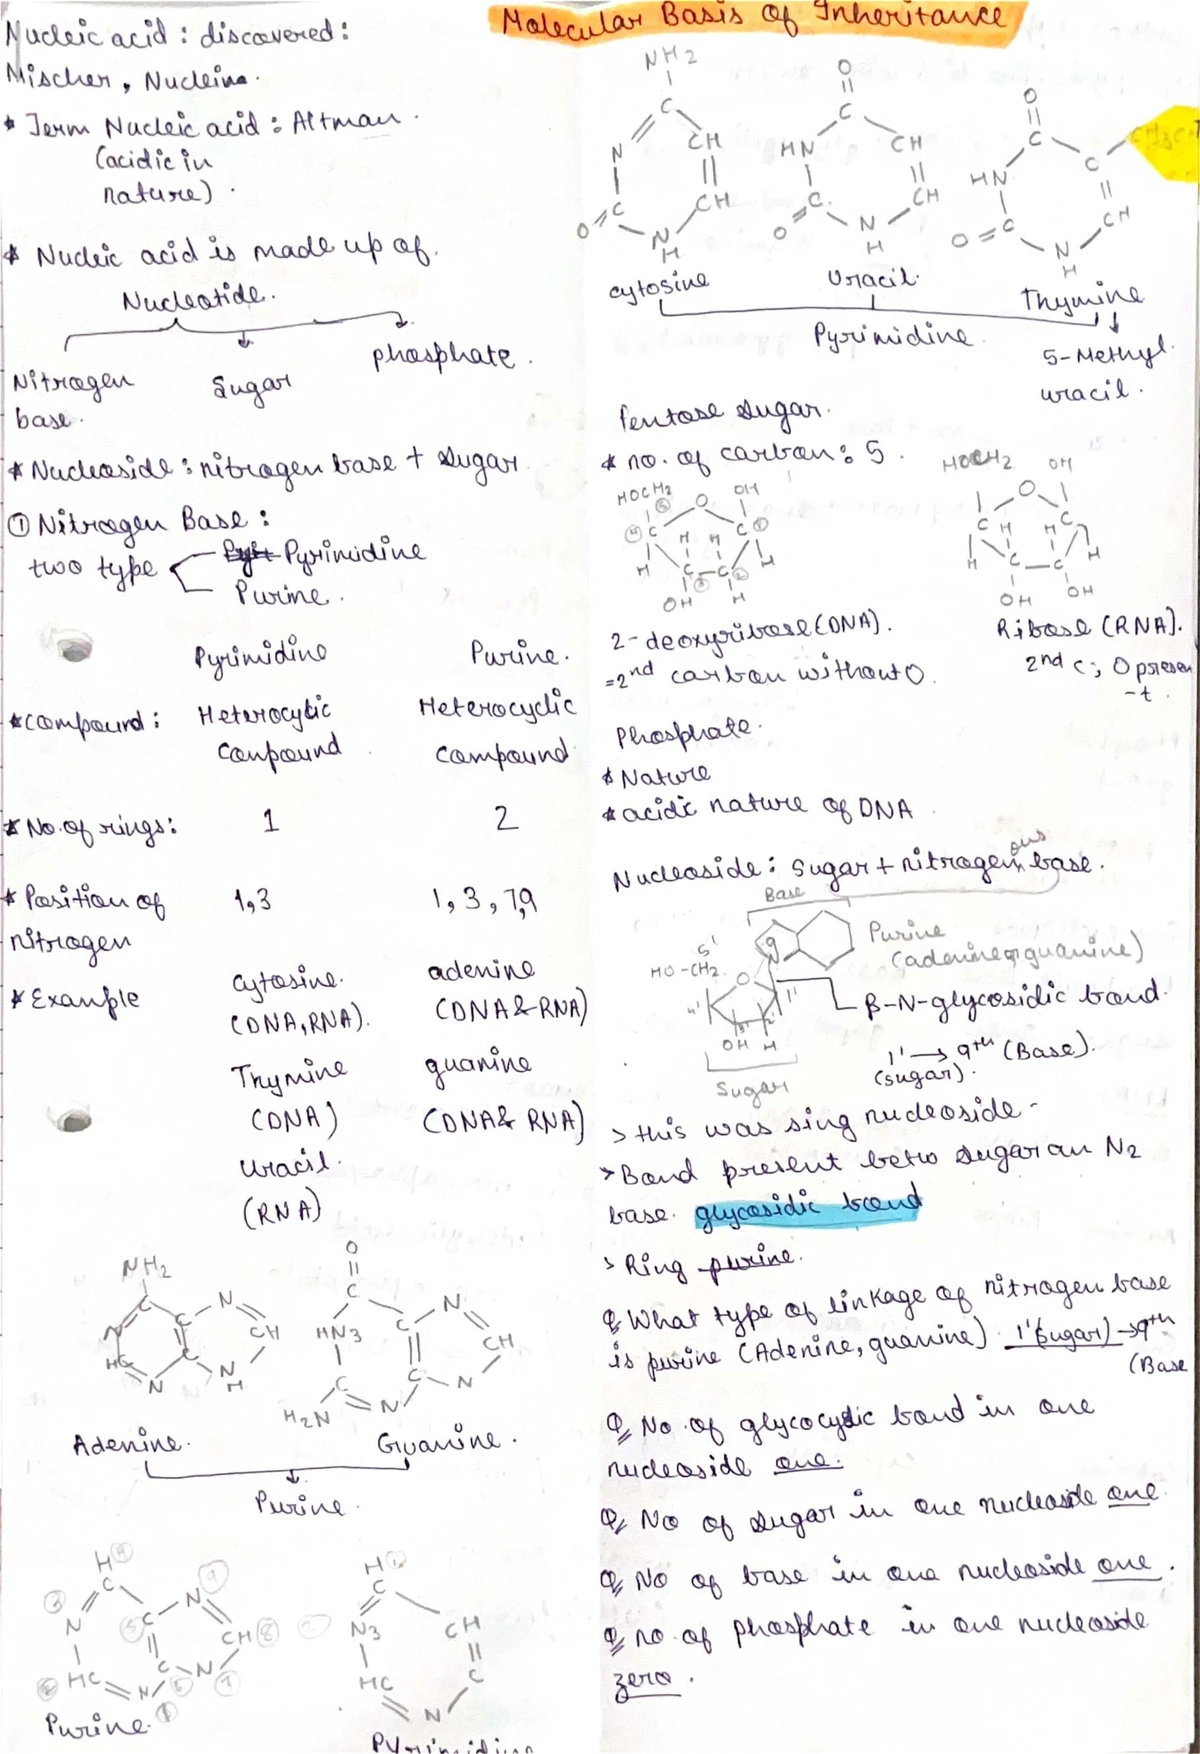 Molecular Basis of Inheritance
Nucleic acid : discovered :
Mischer, Nuclein.
* Term Nucleic acid : Altman.
(acidic in
nature).
* Nucleic acid is made up of.
Nucleotide.
Nitrogen
base.
Sugar
phosphate.
* Nucleoside : nitrogen base + sugar
① Nitrogen Base :
two type
Pyrimidine
Purine.
Pyrimidine Purine.
* compound : Heterocylic Heterocyclic
compound compound
* No. of rings : 1 2
* Position of 1,3 1, 3, 7,9
nitrogen
* Example cytosine. adenine
(DNA, RNA). (DNA & RNA)
Thymine guanine
(DNA) (DNA & RNA)
uracil.
(RNA)
NH2
C
N
N
CH
HC
C
C
N
N
H
Adenine.
O
C
HN3
C
N
CH
C
C
N
H2N
N
Guanine.
Purine.
H
C
N
C
N
CH
HC
C
N
N
Purine.
H
C
N3
CH
HC
C
N
Pyrimidine
NH2
C
N
CH
C
CH
O
N
H
cytosine
O
C
HN
CH
C
CH
O
N
H
Uracil.
O
C
CH3
HN
C
C
CH
O
N
H
Thymine
Pyrimidine.
5-Methyl.
uracil.
Pentose sugar.
* no. of carbon : 5.
HOCH2 O OH
C C
H H H H
C C
OH H
HOCH2 O OH
C C
H H H H
C C
OH OH
2-deoxyribose (DNA).
=2nd carbon without O.
Ribose (RNA).
2nd c; O presen
-t.
Phosphate.
* Nature
* acidic nature of DNA
Nucleoside : Sugar + nitrogenous base.
Base
9
5'
HO-CH2
O
4' 1'
3' 2'
OH H
Sugar
Purine
(adenine or guanine)
β-N-glycosidic bond.
1' → 9th (Base).
(sugar).
> this was sing nucleoside -
> Bond present betw sugar an N2
base. glycosidic bond
> Ring purine.
Q What type of linkage of nitrogen base
is purine (Adenine, guanine) 1' (sugar) → 9th
(Base
Q No. of glycocydic bond in one
nucleoside one.
Q No of sugar in one nucleoside one.
Q No of base in one nucleoside one.
Q no. of phosphate in one nucleoside
zero.